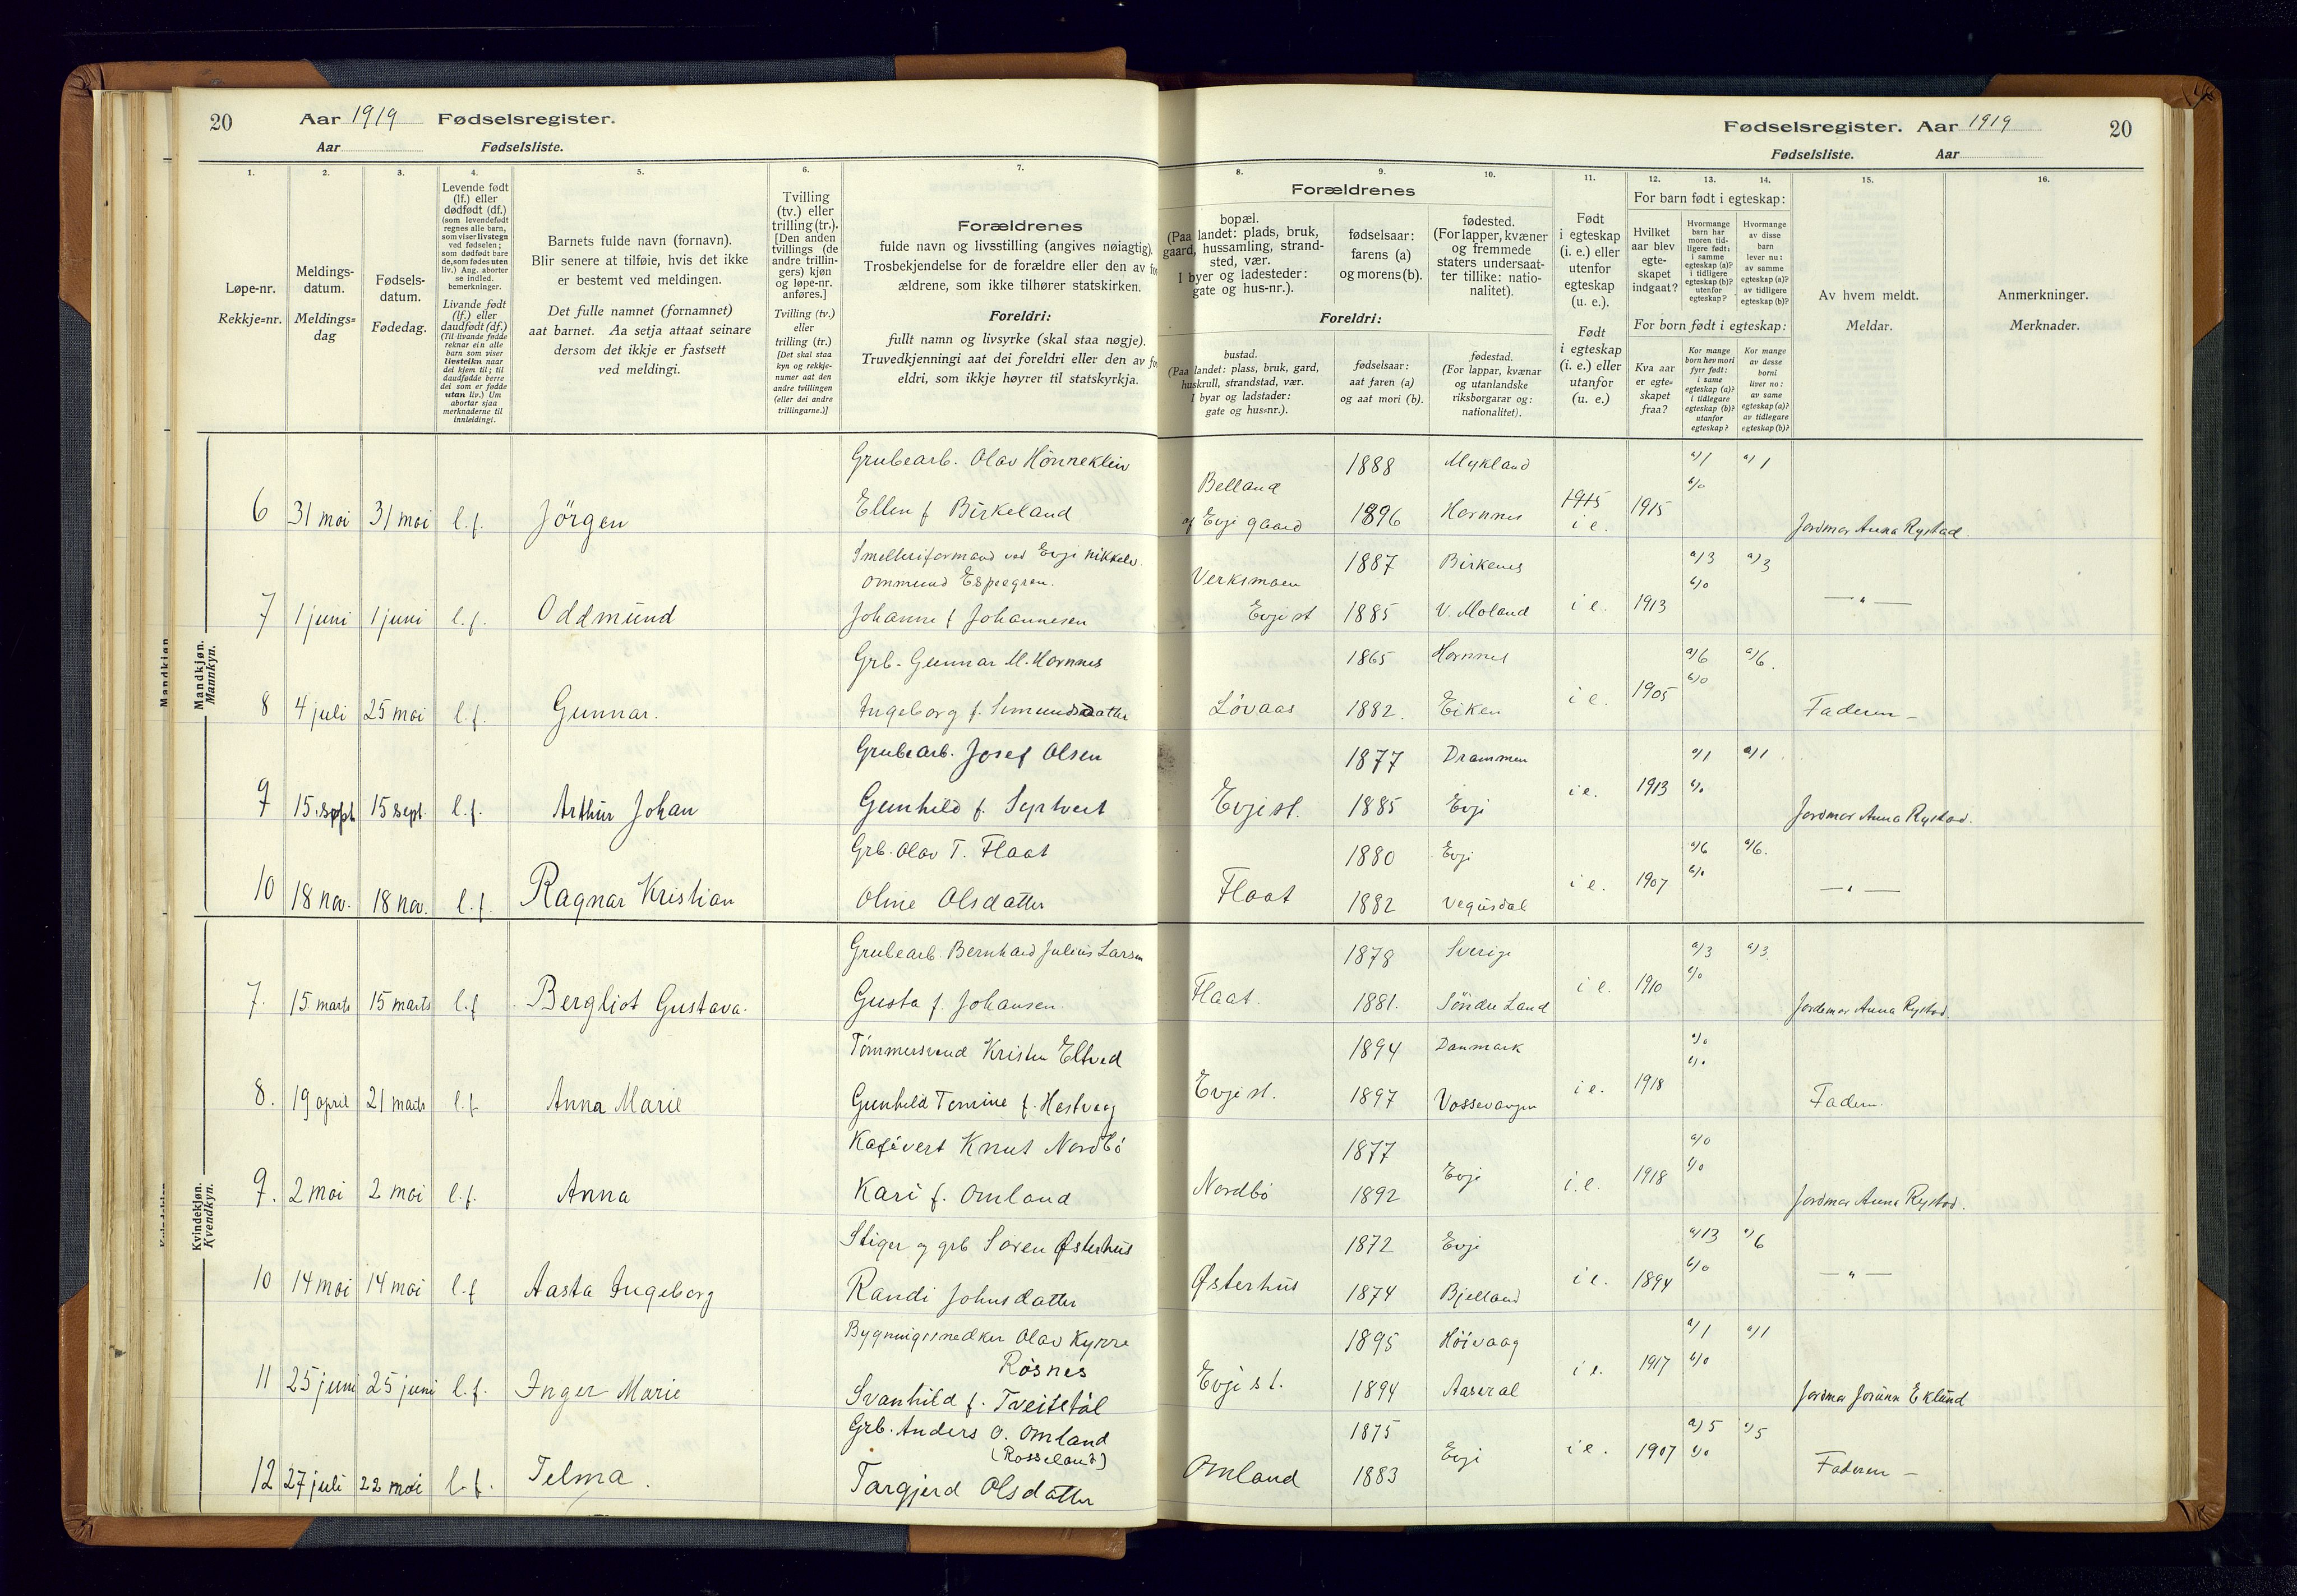 20 Aar 1919 Fødselsregister.
Aar Fødselsliste.
Fødselsregister. Aar 1919 20
Fødselsliste. Aar
1. 2. 3. 4. 5. 6. 7. 8. 9. 10. 11. 12. 13. 14. 15. 16.
Løpe-nr.
Rekkje=nr.
Meldings-
datum.
Meldings=
dag
Fødsels-
datum.
Fødedag.
Levende født
(lf.) eller
dødfødt (df.)
(som levendefødt
regnes alle barn,
som viser livstegn
ved fødselen;
som dødfødt bare
de, som fødes uten
liv.) Ang. aborter
se indled.
bemerkninger.
Livande født
(lf.) eller
daudfødt (df.)
(Til livande fødde
reknar ein alle
barn som viser
livsteikn naar
dei kjem til; til
daudfødde berre
dei som er fødde
utan liv.) Um
abortar sjaa
merknaderne til
innleidingi.
Barnets fulde navn (fornavn).
Blir senere at tilføie, hvis det ikke
er bestemt ved meldingen.
Det fulle namnet (fornamnet)
aat barnet. Aa setja attaat seinare
dersom det ikkje er fastsett
ved meldingi.
Tvilling
(tv.) eller
trilling (tr.).
[Den anden
tvillings (de
andre trillin-
gers) kjøn
og løpe-nr.
anføres.]
Tvilling (tv.)
eller
trilling (tr.)
[Det skal staa
kyn og rekkje-
numer aat den
andre tvillingen
(eller dei andre
trillingarne.)]
Forældrenes
fulde navn og livsstilling (angives nøiagtig).
Trosbekjendelse for de forældre eller den av for
ældrene, som ikke tilhører statskirken.
Foreldri:
fullt namn og livsyrke (skal staa nøgje).
Truvedkjenningi aat dei foreldri eller den av for
eldri, som ikkje høyrer til statskyrkja.
Forældrenes
bopæl.
(Paa landet: plads, bruk,
gaard, hussamling, strand-
sted, vær.
I byer og ladesteder:
gate og hus-nr.).
fødselsaar:
farens (a)
og morens (b).
fødested.
(For lapper, kvæner
og fremmede
staters undersaat-
ter tillike: natio-
nalitet).
Foreldri:
bustad.
(Paa landet: plass, bruk, gard,
huskrull, strandstad, vær.
I byar og ladstader:
gate og hus=nr.).
fødselsaar:
aat faren (a)
og aat mori (b).
fødestad.
(For lappar, kvænar
og utanlandske
riksborgarar og:
nationalitet).
Født
i egteskap
(i. e.) eller
utenfor
egteskap
(u. e.).
Født
i egteskap
(i. e.) eller
utanfor
(u. e.)
For barn født i egteskap:
Hvilket
aar blev
egte-
skapet
indgaat?
Hvormange
barn har
moren tid-
ligere født:
i samme
egteskap (a)?
i tidligere
egteskap (b)?
utenfor
egteskap?
Hvormange
av disse
barn
lever nu:
av samme
egteskap (a)?
av tidligere
egteskap (b)?
For born født i egteskap:
Kva aar
er egte-
skapet
fraa?
Kor mange
born hev mori
fyrr født:
i same
egteskap (a)?
i tidlegare
egteskap (b)?
utanfor
egteskap?
Kor mange
av desse
borni
liver no:
av same
egteskap (a)?
av tidlegare
egteskap (b)?
Av hvem meldt.
Meldar.
Anmerkninger.
Merknader.
Mandkjøn.
Mannkyn.
Grubearb. Olav Hönneklein 1888 Mykland a/1 a/1
Belland b/0
6 31 mai 31 mai l.f. Jörgen Ellen f Birkeland af Evje gaard 1896 Hornnes 1915 i e. 1915 Jordmor Anna Rystad.
Smelteriformand ved Evje nikkelv. 1887 Birkenes a/3 a/3
Ommund Espegren. Verksmoen b/0
7 1 juni 1 juni l.f. Oddmund Johanne f Johannesen Evje st 1885 V. Moland i e. 1913 — " —
Grb. Gunnar M. Hornnes 1865 Hornnes a/6 a/6.
b/0
8 4 juli 25 mai l.f. Gunnar. Ingeborg f. Simundsdatter Lövaas 1882. Eiken i e. 1905 Faderen —
Grubearb. Josef Olsen 1877 Drammen a/1 a/1
9 15. sept 15 sept. l.f. Arthur Johan Gunhild f. Syrtveit Evje st. 1885 Evje i e. 1913 b/0 Jordmor Anna Rystad.
Grb. Olav T. Flaat 1880 Evje a/6 a/6.
10 18 nov. 18 nov. l.f. Ragnar Kristian Oline Olsdatter Flaat 1882 Vegusdal i e. 1907 b/0 — " —
Kvindekjøn.
Kvendkyn.
Grubearb. Bernhard Julius Larsen 1878 Sverige a/3 a/3
7. 15 marts 15 marts l.f Bergliot Gustava. Gusta f. Johansen. Flaat. 1881. Söndre Land i e. 1910 b/0 Jordemor Anna Rystad
Tömmersvend Kristen Eltved 1894 Danmark a/0
8. 19 april 21 marts l.f. Anna Marie Gunhild Tomine f. Hestvaag Evje st. 1897 Vossevangen i e. 1918 b/0 Faderen.
Kafévert Knut Nordbö 1877 a/0
9. 2 mai 2 mai l.f. Anna Kari f. Omland Nordbö 1892 Evje i. e. 1918 b/0 Jordmor Anna Rystad.
Stiger og grb Sören Østerhus 1872 Evje a/13 a/6
10 14 mai 14 mai l.f Aasta Ingeborg Randi Johnsdatter Østerhus 1874 Bjelland i e. 1894 b/0 — " —
Bygningssnedker Olav Kyrre 1895 Höivaag a/1 a/1
Rösnes
11 25 juni 25 juni l.f. Inger Marie Svanhild f. Tveitetål Evje st. 1894 Aaseral i e. 1917 b/0 Jordmor Jorunn Eklund
Grb. Anders O. Omland 1875 a/5 a/5
(Rosseland)
12 27 juli 22 mai l.f. Telma. Targjerd Olsdatter Omland 1883 Evje i e. 1907 b/0 Faderen —